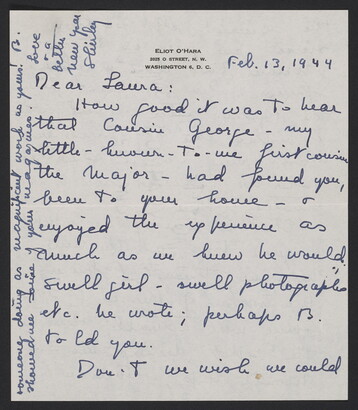 ELIOT O'HARA
2025 O STREET, N. W.
WASHINGTON 6, D. C.
Feb. 13, 1944
Dear Laura:
How good it was to hear
that Cousin George - my
little-known-to-me first cousin
the Major - had found you,
been to your home - &
enjoyed the experience as
much as we knew he would.
"Swell girl - swell photographs"
etc. he wrote; perhaps B.
told you.
Don't we wish we could
someone doing as magnificent work as yours! B.
showed me some of your magazines.
Love
& a
better
new year
Shirley